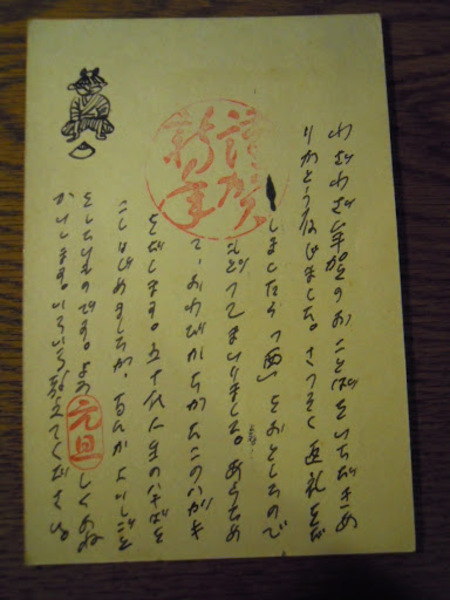 わざわざ年賀のおことばをいただきあ
りがとう存じました。さっそく返礼をだ
しましたら「西」をおとしたので
もどってまいりました。あらため
て、おわびかたがたこのハガキ
をだします。五十代人生の
こしはじめましたが、なんかよいしごと
をしたいものです。よろしくおね
がいします。いろいろ教えてください。
謹賀
新年
元旦